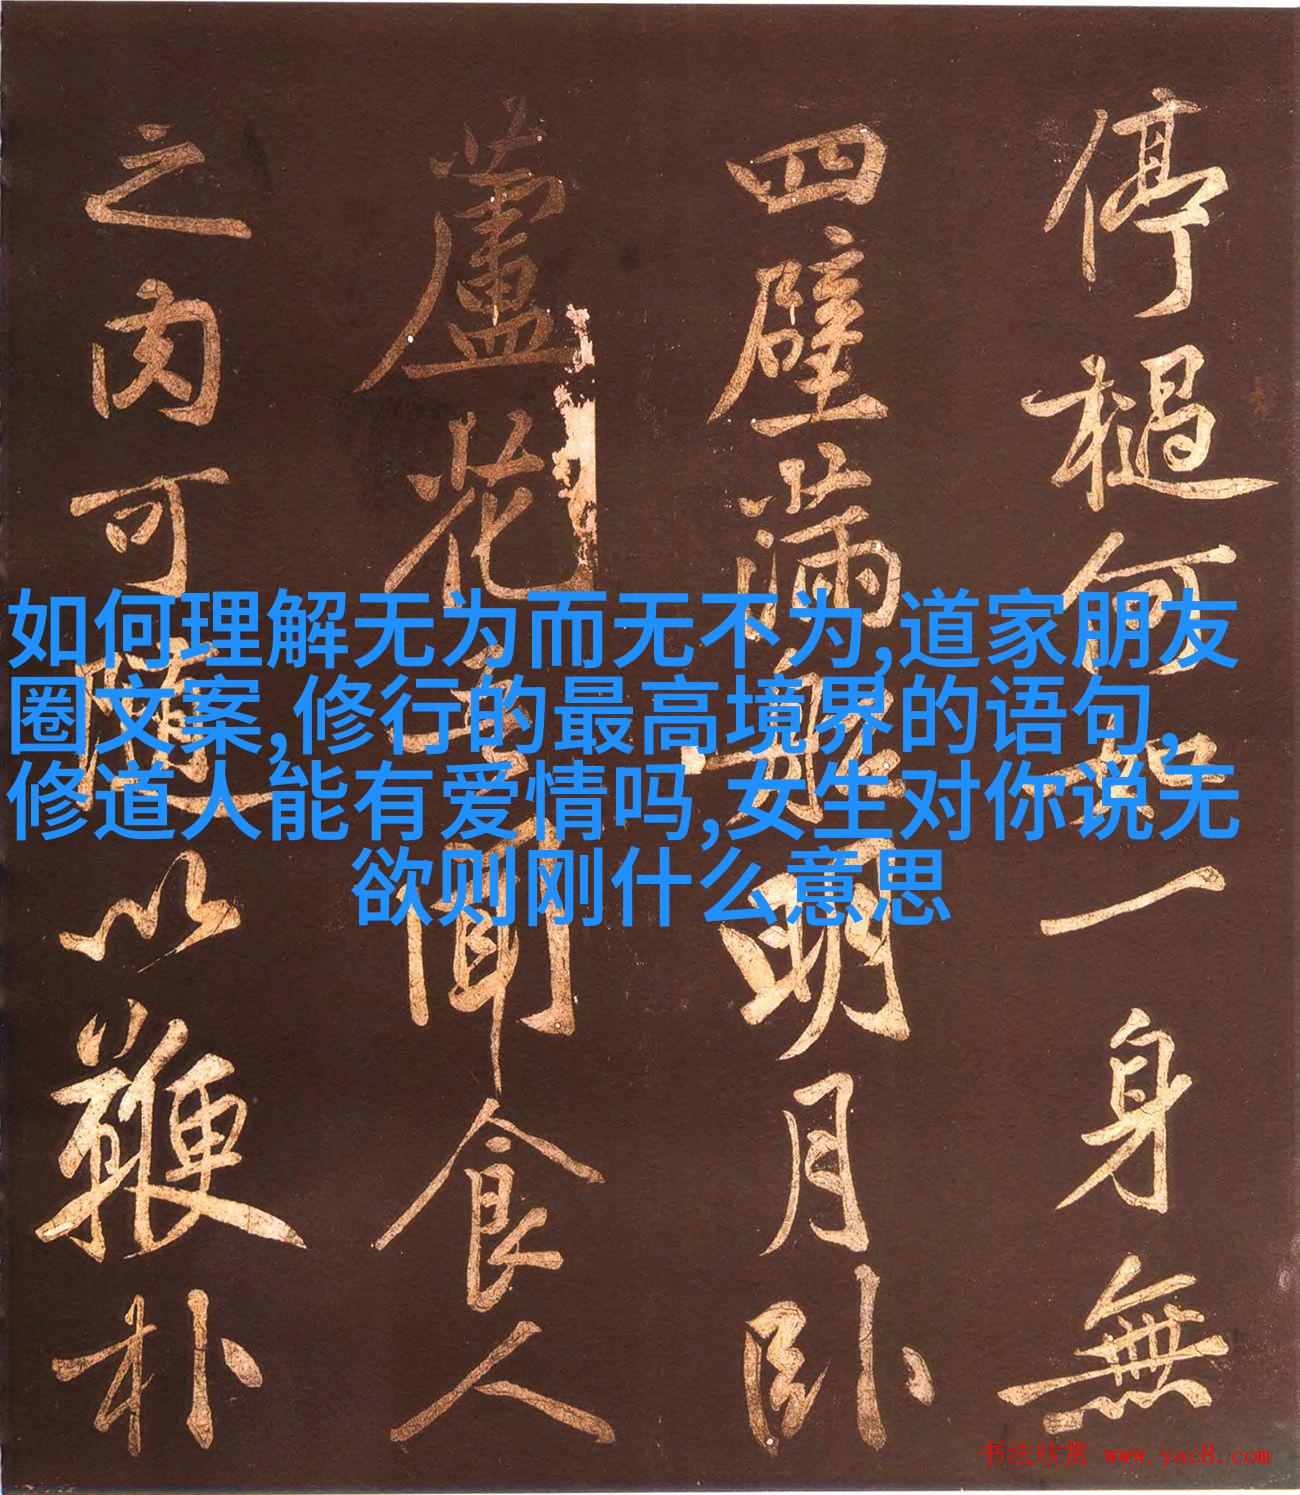 如何理解无为而无不为,道家朋友
圈文案,修行的最高境界的语句,
修道人能有爱情吗,女生对你说无
欲则刚什么意思
停檛何如一身無
四壁滿船明月卧
蘆花
聞食人
之肉可隨以鞭朴
书法欣赏 www.yac8.com